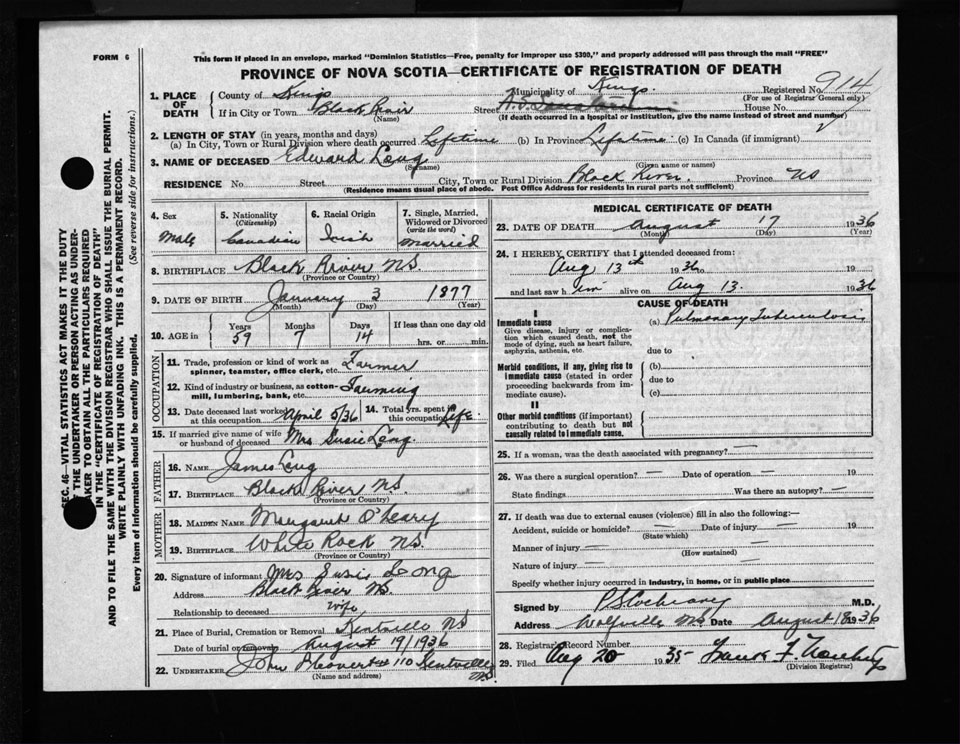 FORM 6
This form if placed in an envelope, marked "Dominion Statistics—Free, penalty for improper use $300," and properly addressed will pass through the mail "FREE"
PROVINCE OF NOVA SCOTIA—CERTIFICATE OF REGISTRATION OF DEATH
Registered No. 914
(For use of Registrar General only)
1. PLACE OF DEATH
County of Kings Municipality of Kings
If in City or Town Black River Street House No.
(Name) (If death occurred in a hospital or institution, give the name instead of street and number)
2. LENGTH OF STAY (in years, months and days)
(a) In City, Town or Rural Division where death occurred Lifetime (b) In Province Lifetime (c) In Canada (if immigrant)
3. NAME OF DECEASED Edward Long
(Surname) (Given name or names)
RESIDENCE No. Street City, Town or Rural Division Black River. Province NS
(Residence means usual place of abode. Post Office Address for residents in rural parts not sufficient)
4. Sex Male
5. Nationality (Citizenship) Canadian
6. Racial Origin Irish
7. Single, Married, Widowed or Divorced (write the word) Married
8. BIRTHPLACE Black River NS.
(Province or Country)
9. DATE OF BIRTH January 3 1877
(Month) (Day) (Year)
10. AGE in Years 59 Months 7 Days 14 If less than one day old hrs. or min.
OCCUPATION
11. Trade, profession or kind of work as spinner, teamster, office clerk, etc. Farmer
12. Kind of industry or business, as cotton-mill, lumbering, bank, etc. Farming
13. Date deceased last worked at this occupation April 5/36 14. Total yrs. spent in this occupation Life
15. If married give name of wife or husband of deceased Mrs Susie Long
FATHER
16. NAME James Long
17. BIRTHPLACE Black River NS
(Province or Country)
MOTHER
18. MAIDEN NAME Margaret O'Leary
19. BIRTHPLACE White Rock NS.
(Province or Country)
20. Signature of informant Mrs Susie Long
Address Black River NS.
Relationship to deceased Wife
21. Place of Burial, Cremation or Removal Kentville NS
Date of burial or removal August 19/1936
22. UNDERTAKER John 110 Kentville NS
(Name and address)
MEDICAL CERTIFICATE OF DEATH
23. DATE OF DEATH August 17 1936
(Month) (Day) (Year)
24. I HEREBY CERTIFY that I attended deceased from:
Aug 13th 1936 to 19
and last saw him alive on Aug 13. 1936
CAUSE OF DEATH
I
Immediate cause (a) Pulmonary Tuberculosis
Give disease, injury or complication which caused death, not the mode of dying, such as heart failure, asphyxia, asthenia, etc.
due to
Morbid conditions, if any, giving rise to immediate cause (stated in order proceeding backwards from immediate cause).
(b)
due to
(c)
II
Other morbid conditions (if important) contributing to death but not causally related to immediate cause.
25. If a woman, was the death associated with pregnancy?
26. Was there a surgical operation? — Date of operation — 19
State findings Was there an autopsy? —
27. If death was due to external causes (violence) fill in also the following:—
Accident, suicide or homicide? — Date of injury — 19
(State which)
Manner of injury —
(How sustained)
Nature of injury —
Specify whether injury occurred in industry, in home, or in public place
Signed by P.S. Cochrane M.D.
Address Wolfville NS. Date August 18 1936
28. Registrar's Record Number
29. Filed Aug 20 1935 Frank F.
(Division Registrar)
SEC. 46—VITAL STATISTICS ACT MAKES IT THE DUTY
OF THE UNDERTAKER OR PERSON ACTING AS UNDERTAKER TO OBTAIN ALL THE PARTICULARS REQUIRED
IN THE "CERTIFICATE OF REGISTRATION OF DEATH"
AND TO FILE THE SAME WITH THE DIVISION REGISTRAR WHO SHALL ISSUE THE BURIAL PERMIT.
WRITE PLAINLY WITH UNFADING INK. THIS IS A PERMANENT RECORD.
Every item of information should be carefully supplied. (See reverse side for instructions.)